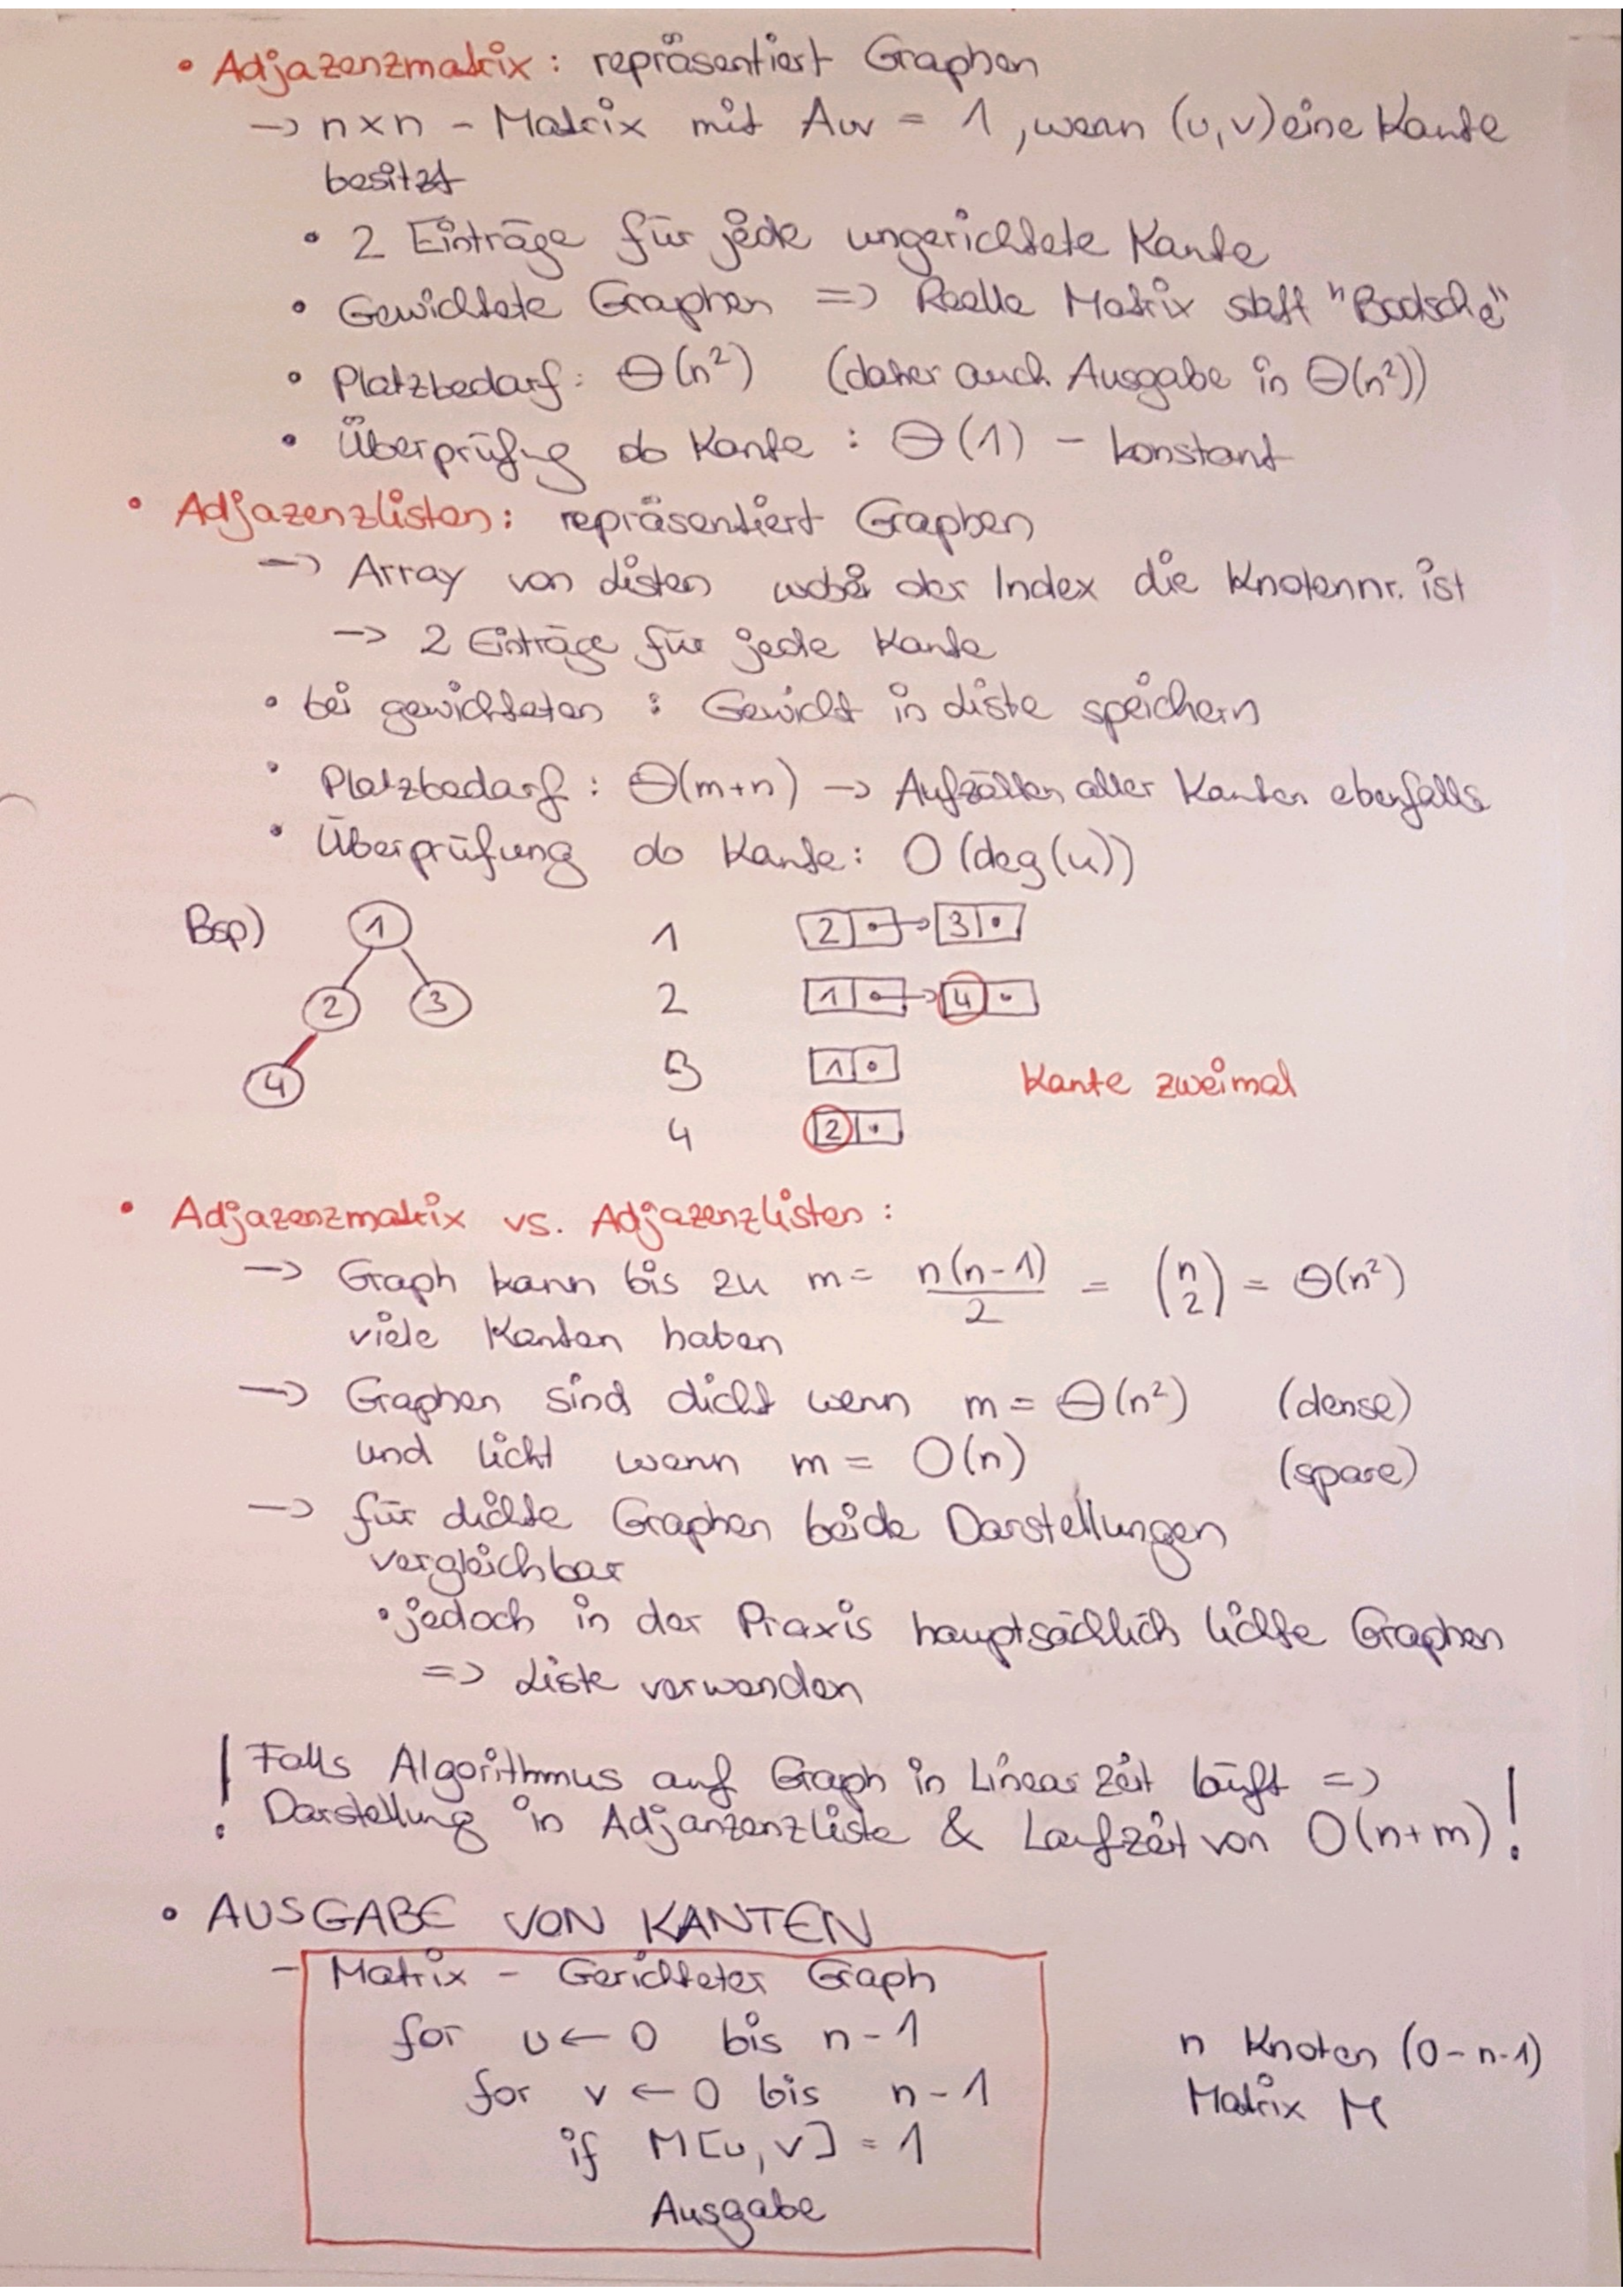 • Adjazenzmatrix: repräsentiert Graphen
→ n×n - Matrix mit Auv = 1, wenn (u,v) eine Kante
besitzt
• 2 Einträge für jede ungerichtete Kante
• Gewichtete Graphen => Reelle Matrix statt "Boolsche"
• Platzbedarf: Θ(n²) (daher auch Ausgabe in Θ(n²))
• Überprüfung ob Kante: Θ(1) - konstant
• Adjazenzlisten: repräsentiert Graphen
→ Array von Listen wobei der Index die Knotennr. ist
→ 2 Einträge für jede Kante
• bei gewichteten: Gewicht in Liste speichern
• Platzbedarf: Θ(m+n) → Aufzählen aller Kanten ebenfalls
• Überprüfung ob Kante: O(deg(u))
Bsp) 1 1 2 • 3 •
2 3 2 1 • 4 •
4 3 1 • Kante zweimal
4 2 •
• Adjazenzmatrix vs. Adjazenzlisten:
→ Graph kann bis zu m = n(n-1)/2 = (n 2) = Θ(n²)
viele Kanten haben
→ Graphen sind dicht wenn m = Θ(n²) (dense)
und licht wenn m = O(n) (spare)
→ für dichte Graphen beide Darstellungen
vergleichbar
• jedoch in der Praxis hauptsächlich lichte Graphen
=> Liste verwenden
! Falls Algorithmus auf Graph in Linearzeit läuft =>
Darstellung in Adjanzenzliste & Laufzeit von O(n+m) !
• AUSGABE VON KANTEN
- Matrix - Gerichteter Graph
for u ← 0 bis n-1 n Knoten (0-n-1)
for v ← 0 bis n-1 Matrix M
if M[u,v] = 1
Ausgabe